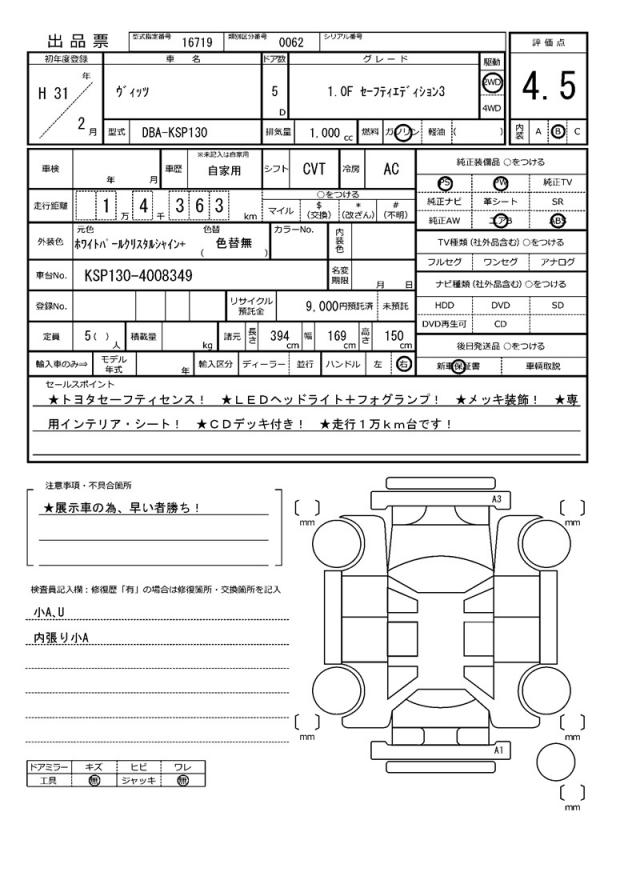 出品票 型式指定番号 16719 類別区分番号 0062 シリアル番号
初年度登録 車名 ドア数 グレード 駆動 評価点
H 31 年 2 月 ヴィッツ 5 D 1.0F セーフティエディション3 2WD 4WD 4.5
型式 DBA-KSP130 排気量 1.000 cc 燃料 ガソリン 軽油 ( ) 内装 A B C
車検 年 月 車歴 ※未記入は自家用 自家用 シフト CVT 冷房 AC
走行距離 1 万 4 千 3 6 3 km ○をつける マイル $ (交換) * (改ざん) # (不明)
外装色 元色 ホワイトパールクリスタルシャイン+ 色替 ( 色替無 ) カラーNo. 内装色
車台No. KSP130-4008349 名変期限 月 日
登録No. リサイクル預託金 9,000円預託済 未預託
定員 5( ) 人 積載量 kg 諸元 長さ 394 cm 幅 169 cm 高さ 150 cm
輸入車のみ⇒ モデル年式 年 輸入区分 ディーラー 並行 ハンドル 左 右
純正装備品 ○をつける
PS PW 純正TV
純正ナビ 革シート SR
純正AW エアB ABS
TV種類 (社外品含む) ○をつける
フルセグ ワンセグ アナログ
ナビ種類 (社外品含む) ○をつける
HDD DVD SD
DVD再生可 CD
後日発送品 ○をつける
新車保証書 車輌取説
セールスポイント
★トヨタセーフティセンス! ★LEDヘッドライト+フォグランプ! ★メッキ装飾! ★専
用インテリア・シート! ★CDデッキ付き! ★走行1万km台です!
注意事項・不具合箇所
★展示車の為、早い者勝ち!
検査員記入欄:修復歴「有」の場合は修復箇所・交換箇所を記入
小A、U
内張り小A
ドアミラー キズ ヒビ ワレ
工具 無 ジャッキ 無
A3
[ ] mm [ ] mm
[ ] mm [ ] mm
A1
[ ] mm